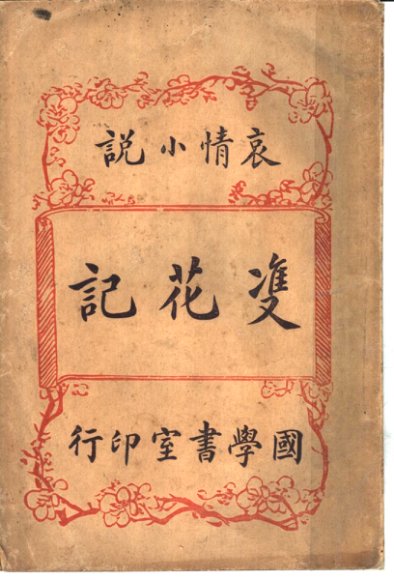 哀情小説
㕠花記
國學書室印行